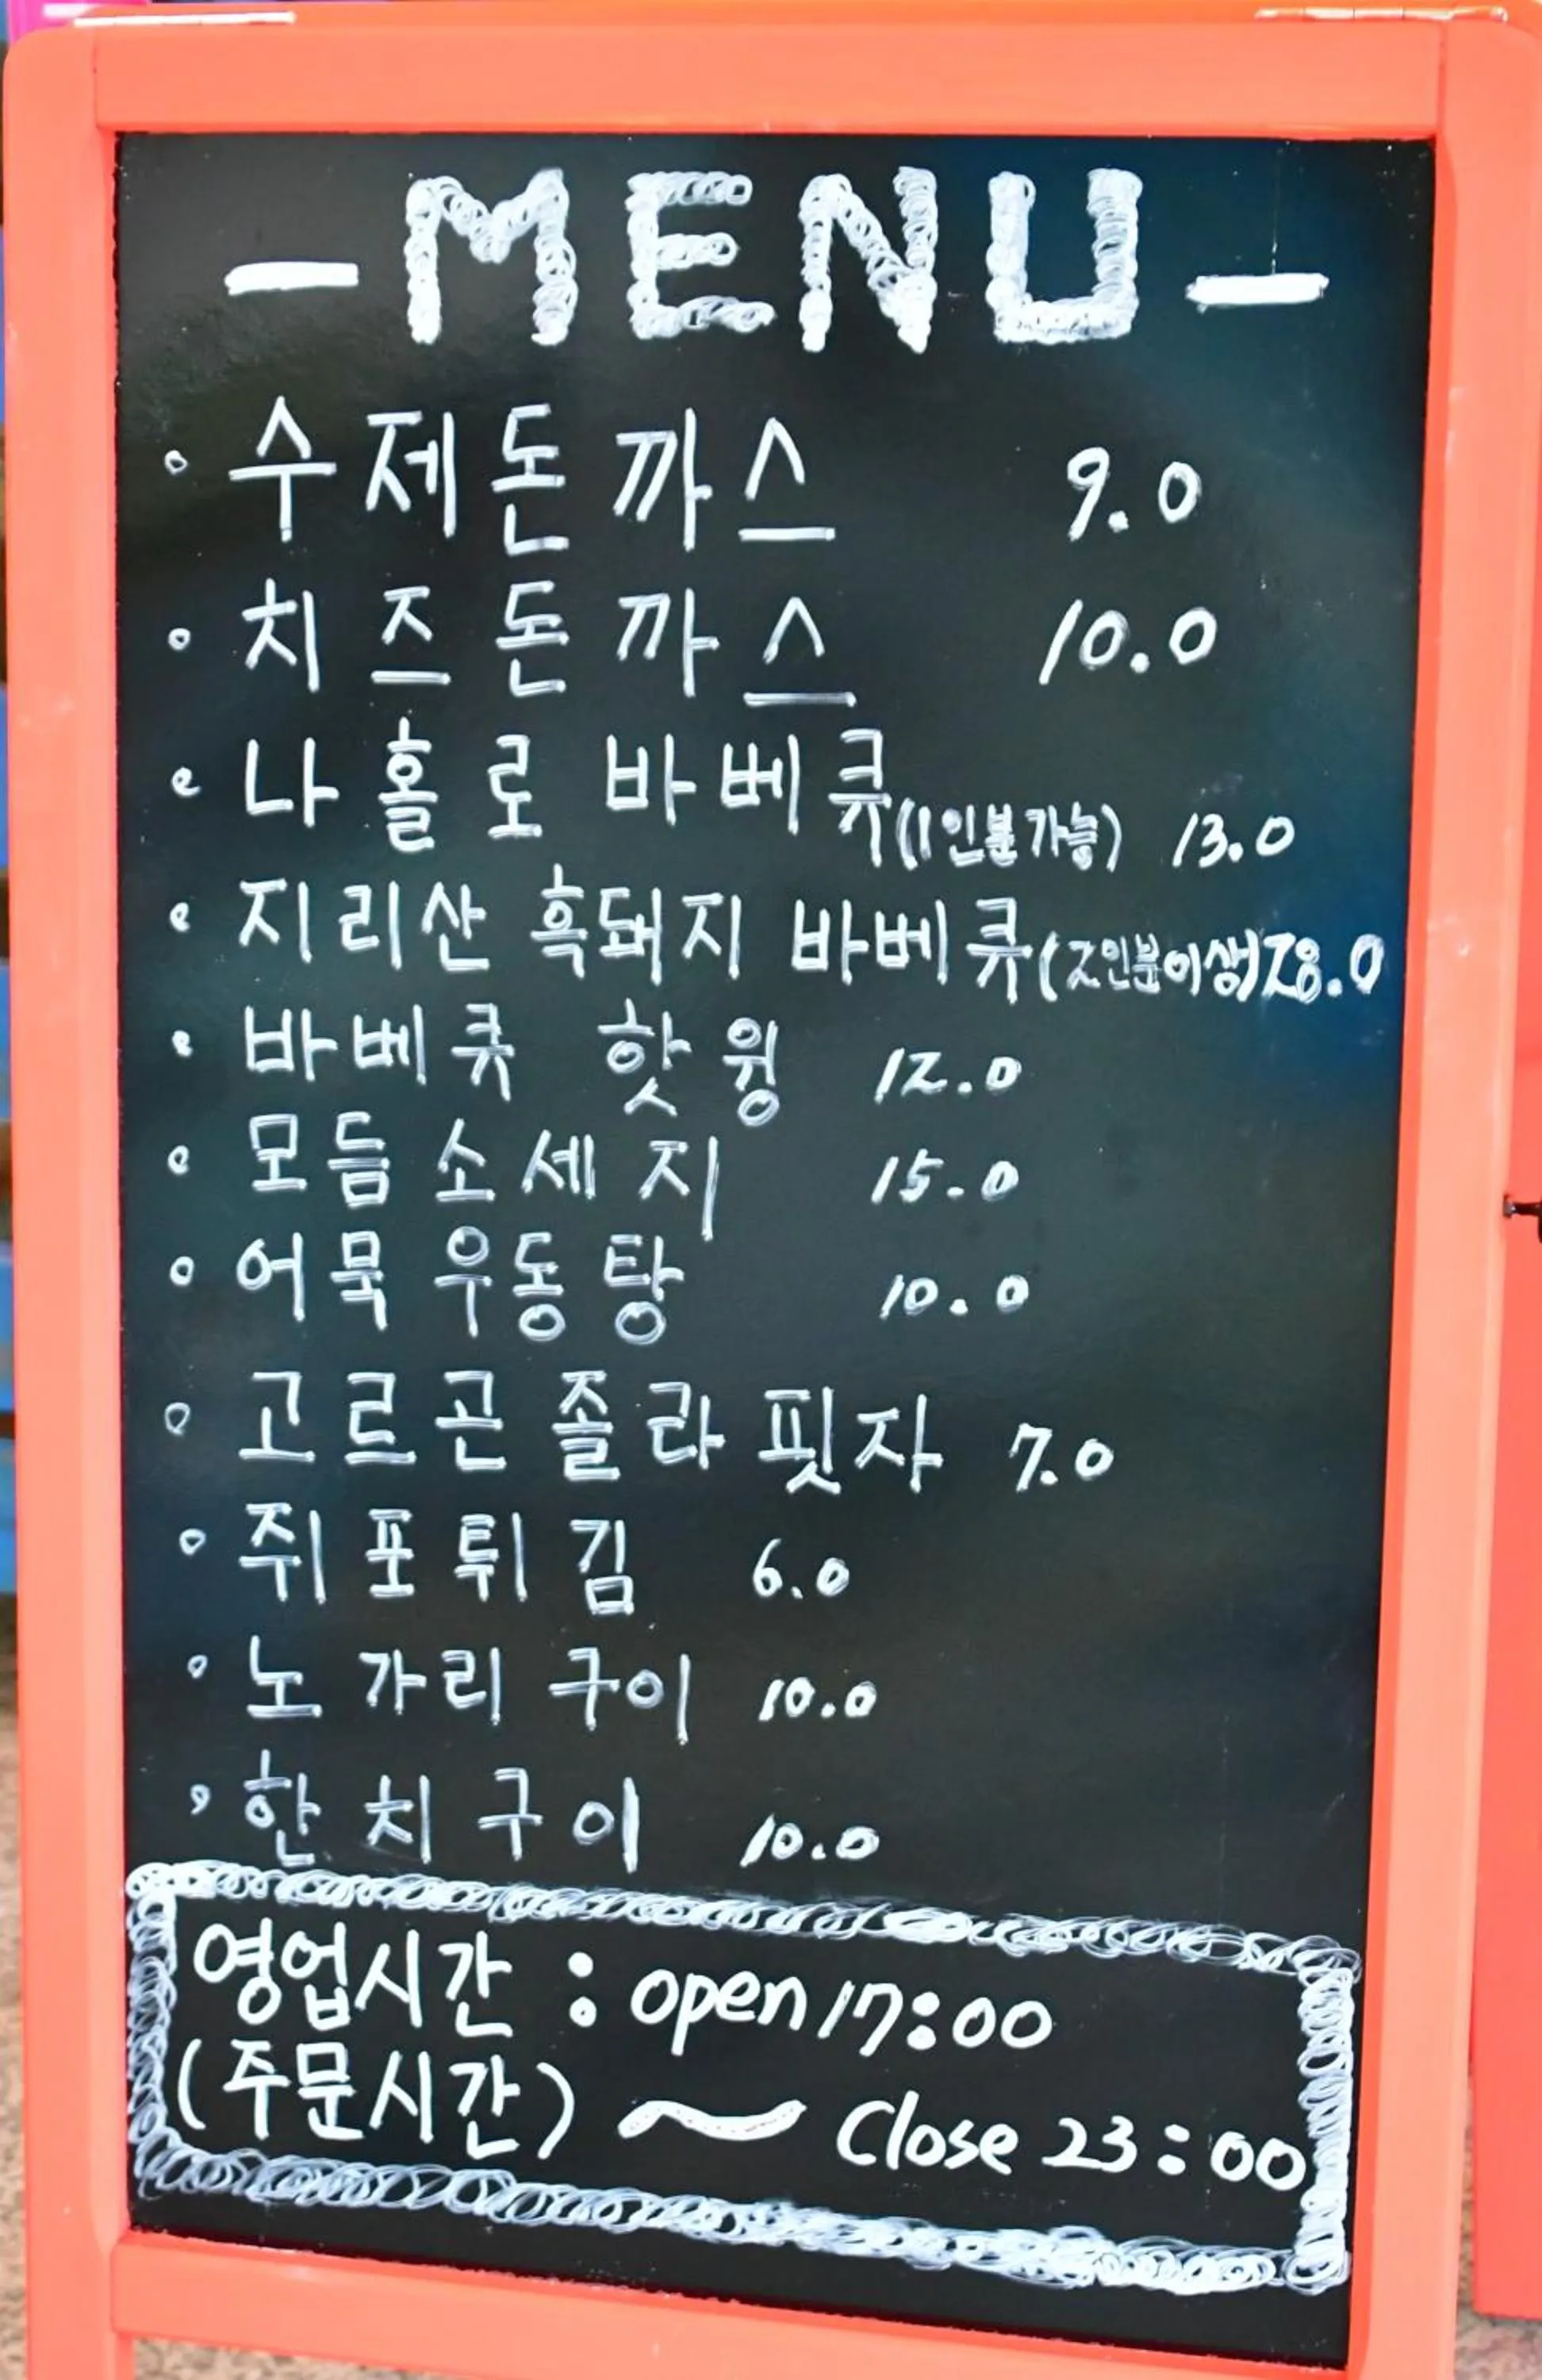 - MENU -
• 수제돈까스 9.0
• 치즈돈까스 10.0
• 나홀로 바베큐(1인분가능) 13.0
• 지리산 흑돼지 바베큐(2인분이상)28.0
• 바베큐 핫윙 12.0
• 모듬소세지 15.0
• 어묵우동탕 10.0
• 고르곤졸라핏자 7.0
• 쥐포튀김 6.0
• 노가리구이 10.0
• 한치구이 10.0
영업시간 : open 17:00
(주문시간) ~ Close 23:00